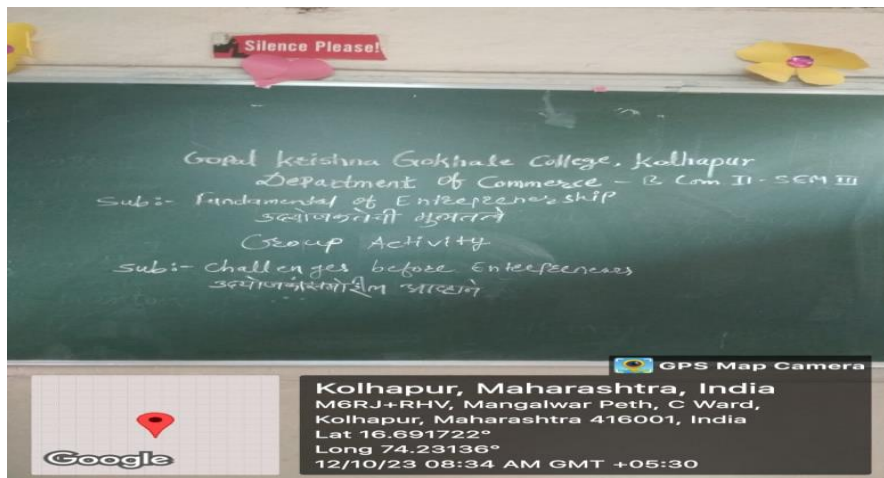 Silence Please!
Gopal Krishna Gokhale College, Kolhapur
Department of Commerce - B Com II - SEM III
Sub:- Fundamental of Entrepreneurship
उद्योजकतेची मुलतत्वे
Group Activity
Sub:- Challenges before Entrepreneures
उद्योजकांसमोरील आव्हाने
GPS Map Camera
Kolhapur, Maharashtra, India
M6RJ+RHV, Mangalwar Peth, C Ward,
Kolhapur, Maharashtra 416001, India
Lat 16.691722°
Long 74.23136°
12/10/23 08:34 AM GMT +05:30
Google